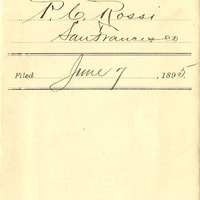 P. C. Rossi
San Francisco
Filed June 7, 1895.